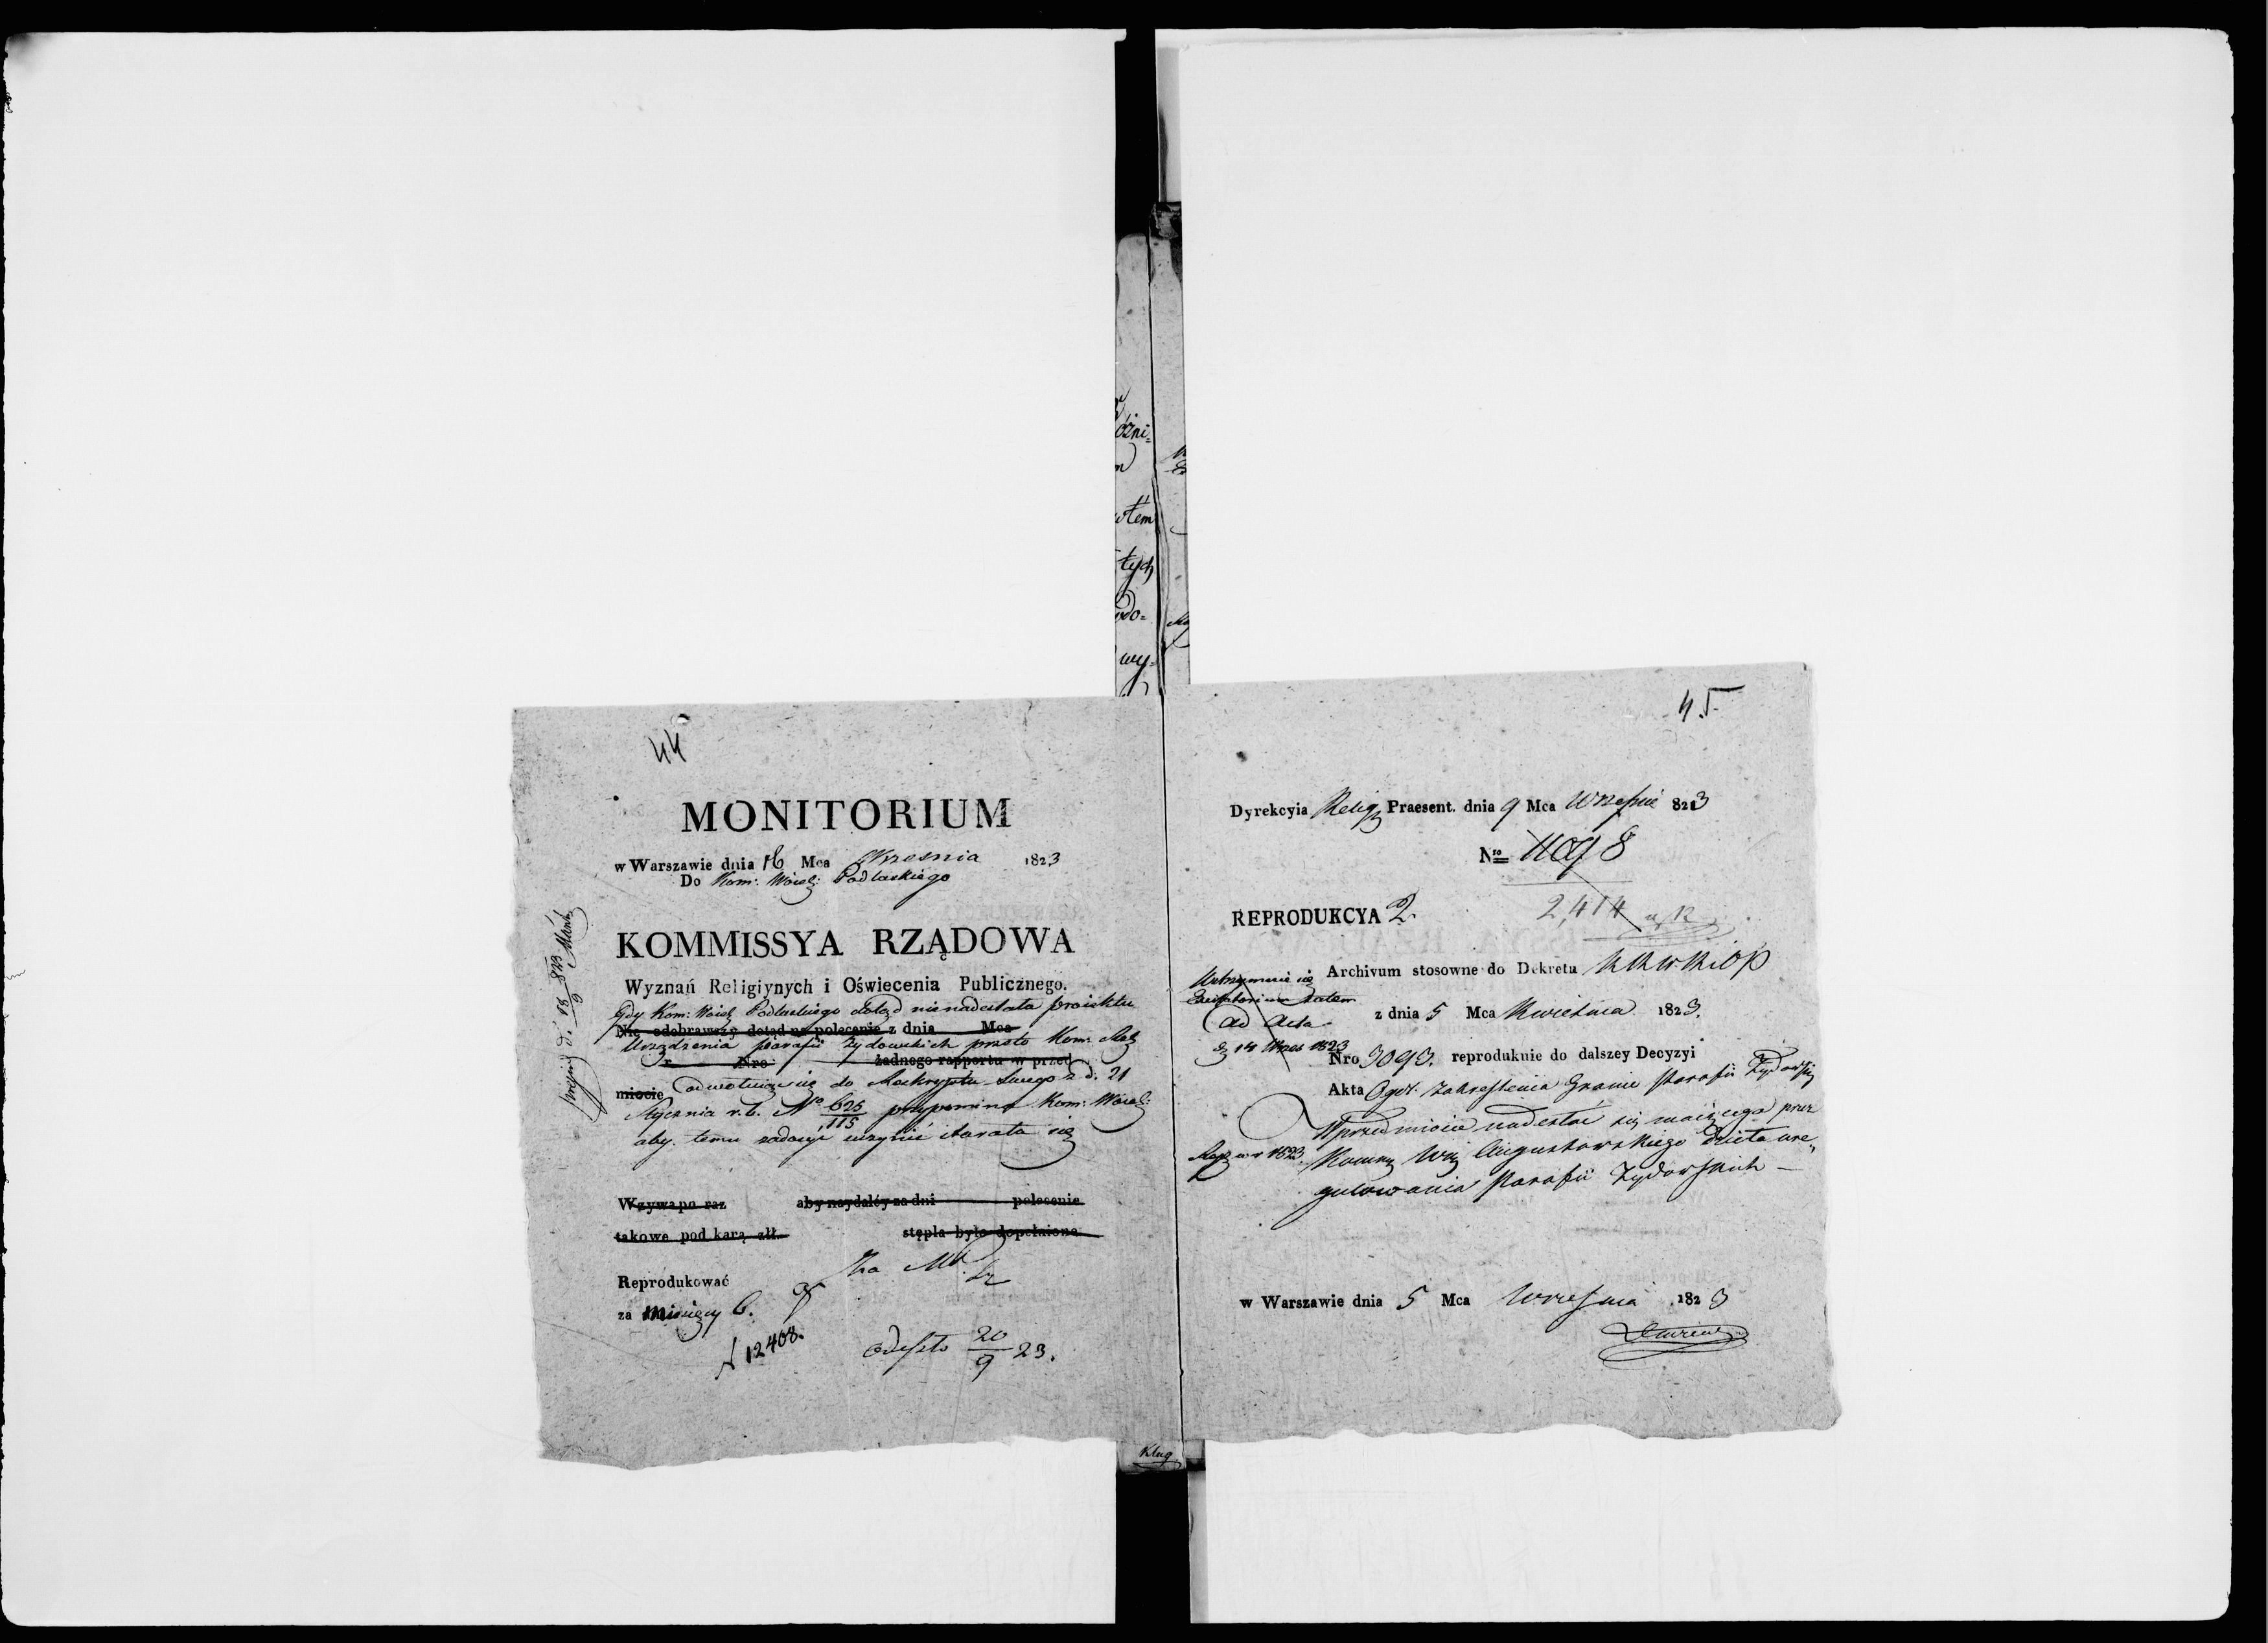 44
MONITORIUM
w Warszawie dnia 16 Mca Wrzesnia 1823
Do Kom: Woiew: Podlaskiego
KOMMISSYA RZĄDOWA
Wyznań Religiynych i Oświecenia Publicznego.
Gdy Kom: Woiew: Podlaskiego dotąd nienadesłała proiektu
Nie odebrawszy dotąd na polecenie z dnia Mca
Urządzenia parafii żydowskich przeto Kom: Rzą
r. Nro żadnego rapportu w przed
miocie odwołuiąc się do Reskryptu Swego z d. 21
Stycznia r. b. No 625/115 przypomina Kom: Woiew:
aby temu zadosyć uczynić starała się
Wzywa po raz aby naydaléy za dni polecenie
takowe pod karą złł. stępla było dopełnione
Reprodukować
za miesięcy 6.
N 12408.
odeszło 20/9 23.
45.
Dyrekcyia Relig Praesent. dnia 9 Mca Wrześnie 823
Nro 1198
2,414
REPRODUKCYA 2.
Archivum stosowne do Dekretu
Utrzymuie się
Excitatorium zatem
ad Acta
d 14 Wrzes 1823
z dnia 5 Mca Kwietnia 1823.
Nro 3093. reprodukuie do dalszey Decyzyi
Akta Ogól: zakreślenia Granic Parafii Żydowskich
W przedmiocie nadesłać się maiącego przez
Kommę Wwa Augustowskiego dzieła ure„
gulowania Parafii Żydowskich —
w Warszawie dnia 5 Mca Września 1823
Klug